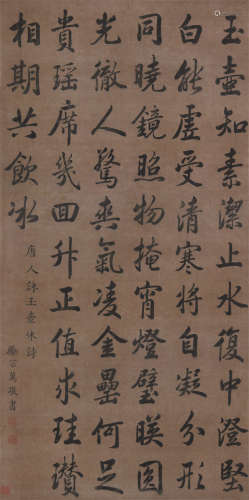 玉壺知素潔止水復中澄堅
白能虛受清寒將自凝分形
同曉鏡照物掩宵燈璧暎圓
光徹人驚爽氣凌金罍何足
貴瑤席幾回升正值求珪瓚
相期共飲冰
唐人詠玉壺冰詩